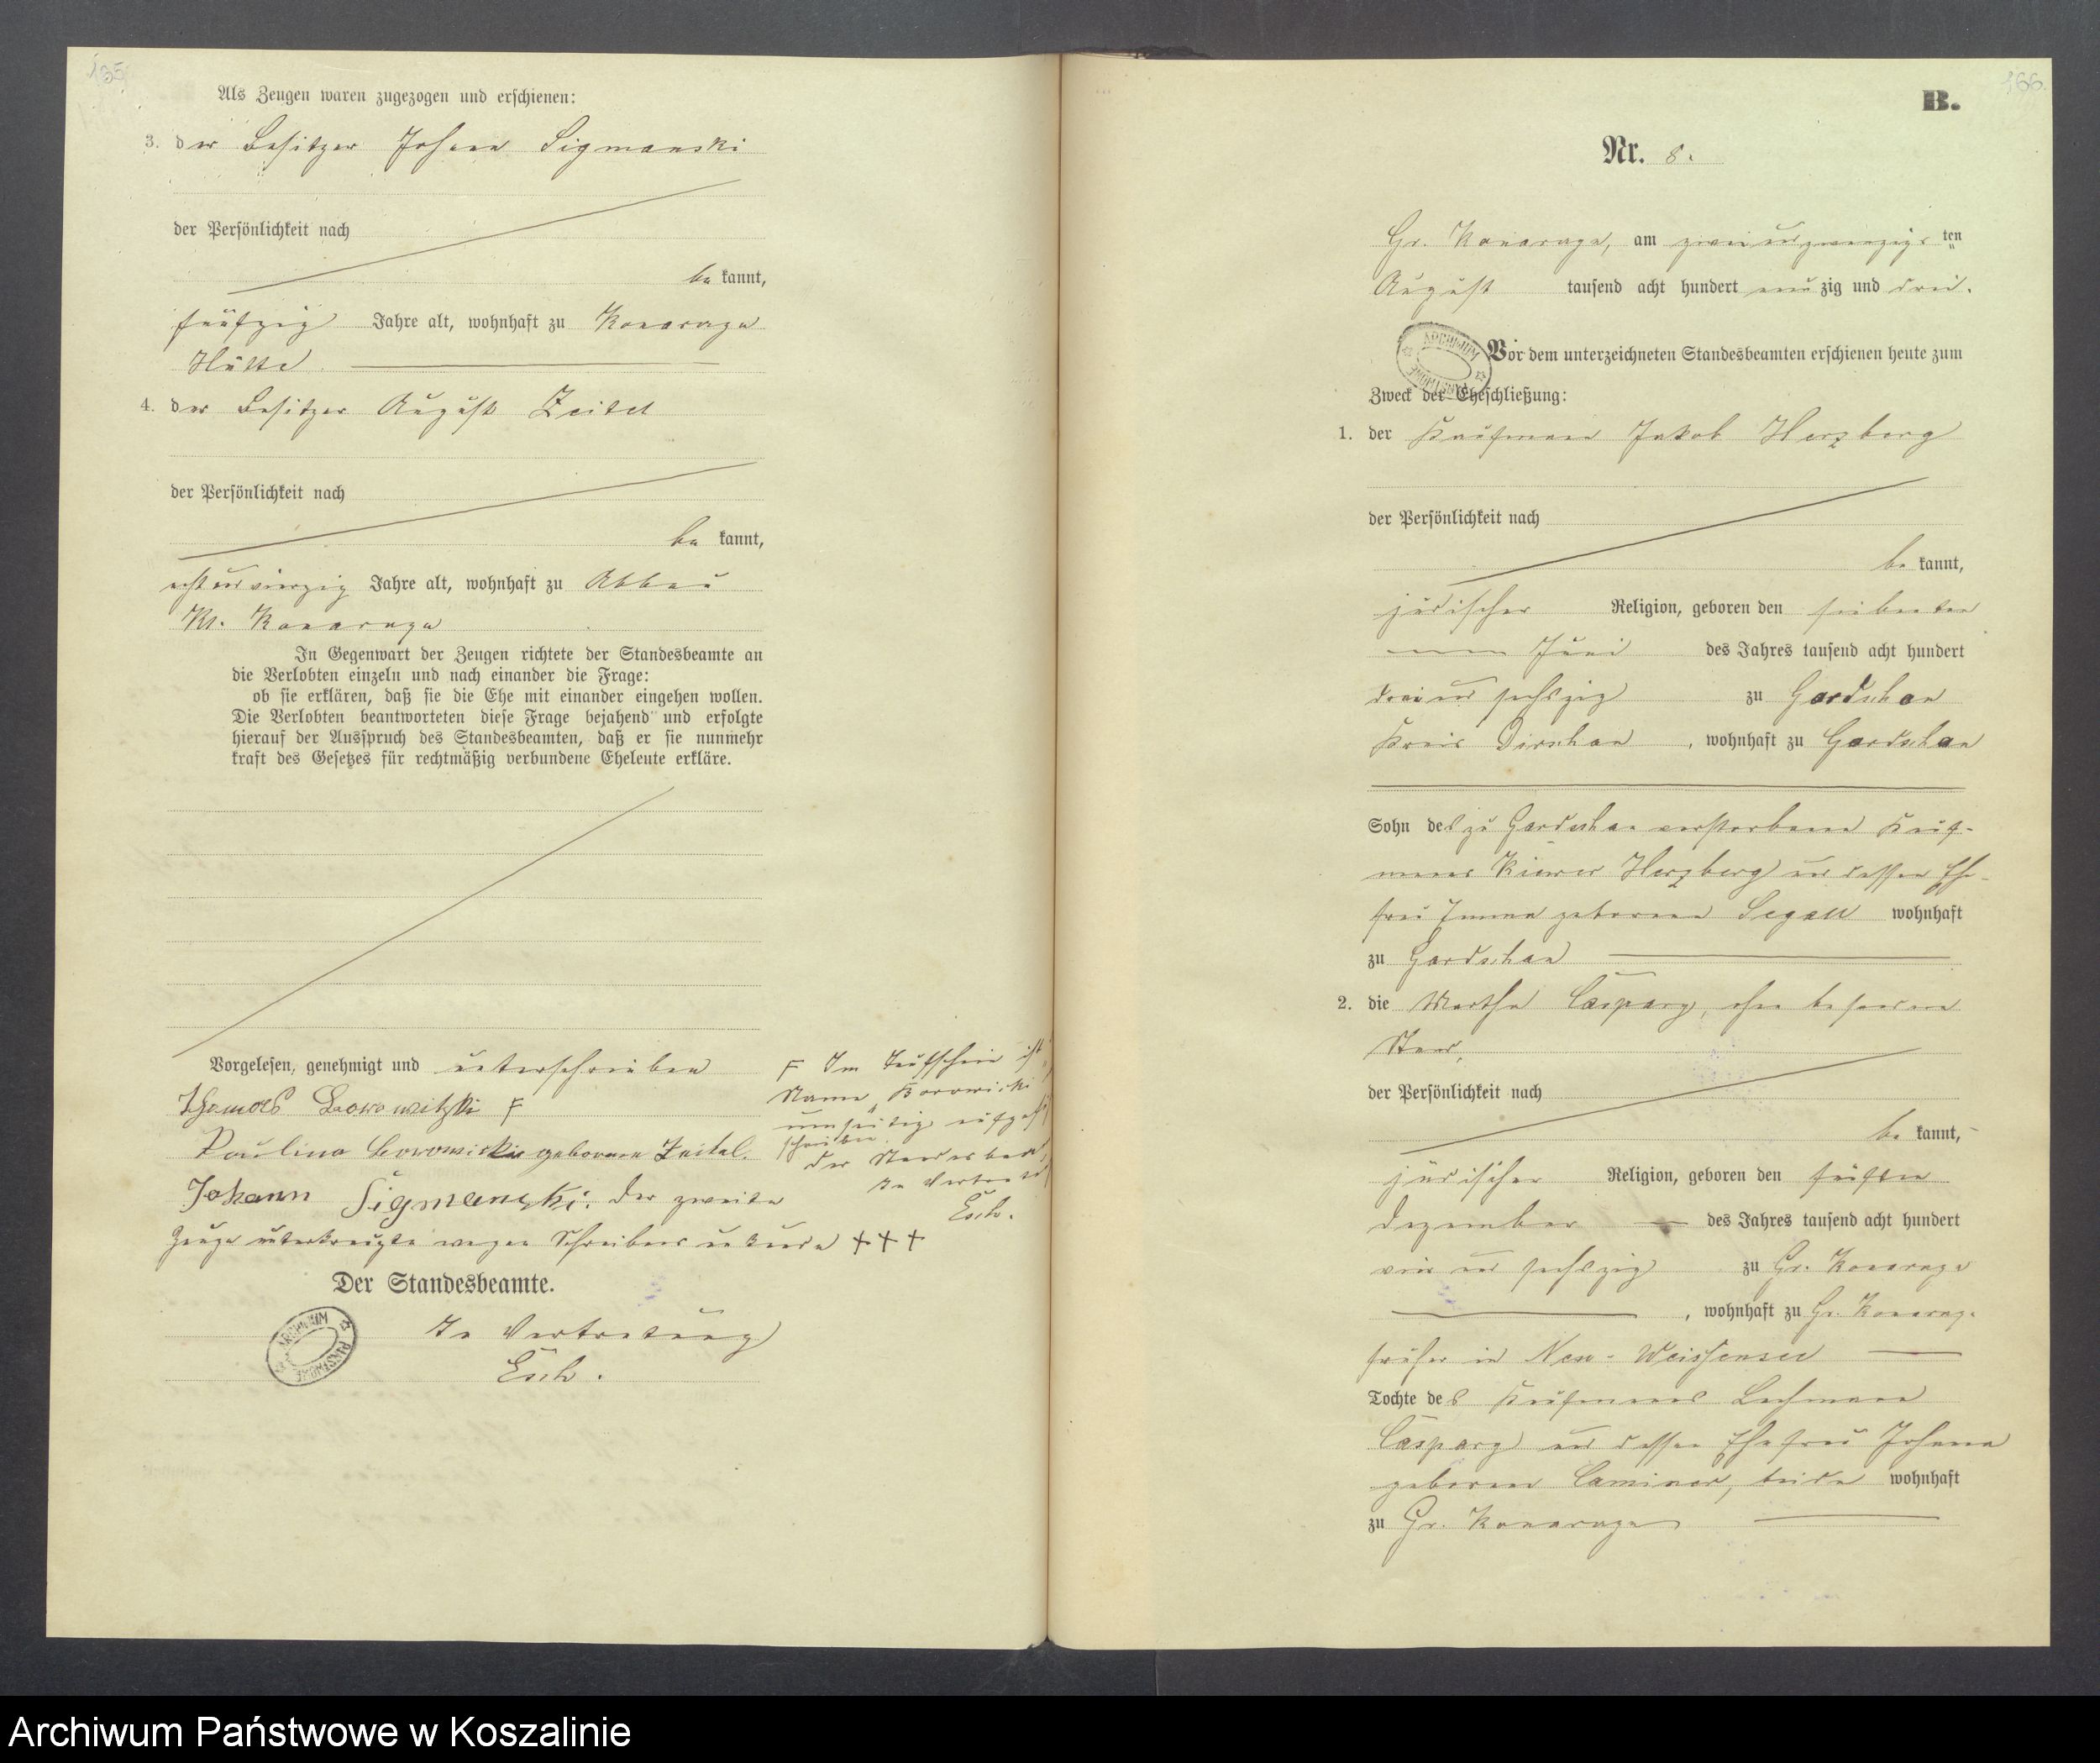 Als Zeugen waren zugezogen und erschienen:
3. der Besitzer Johann Sigmanski
der Persönlichkeit nach
bekannt,
fünfzig Jahre alt, wohnhaft zu Konarczyn
Hütte
4. der Besitzer August Zeitel
der Persönlichkeit nach
bekannt,
achtundvierzig Jahre alt, wohnhaft zu Abbau
Kl. Konarzyn
In Gegenwart der Zeugen richtete der Standesbeamte an
die Verlobten einzeln und nach einander die Frage:
ob sie erklären, daß sie die Ehe mit einander eingehen wollen.
Die Verlobten beantworteten diese Frage bejahend und erfolgte
hierauf der Ausspruch des Standesbeamten, daß er sie nunmehr
kraft des Gesetzes für rechtmäßig verbundene Eheleute erkläre.
Vorgelesen, genehmigt und unterschrieben
Thomas Borowitzki F
Paulina Borowicki geborene Zeitel.
Johann Sigmanski. der zweite
Zeuge unterkreuzte wegen Schreibensunkunde +++
F Im Taufschein ist
Name Borowicki
schrieben.
der Standesbeamte
In Vertret
Esch.
Der Standesbeamte.
In Vertretung
Esch.
ARCHIWUM PAŃSTWOWE
166.
B.
Nr. 8.
Gr. Konarzyn, am zweiundzwanzigsten
August tausend acht hundert neunzig und drei.
ARCHIWUM PAŃSTWOWE
Vor dem unterzeichneten Standesbeamten erschienen heute zum
Zweck der Eheschließung:
1. der Kaufmann Jakob Herzberg
der Persönlichkeit nach
bekannt,
jüdischer Religion, geboren den siebenten
Juni des Jahres tausend acht hundert
dreiundsechszig zu Gardschau
Kreis Dirschau, wohnhaft zu Gardschau
Sohn des zu Gardschau verstorbenen Kauf-
manns Herzberg und dessen Ehe-
frau geborene Segall wohnhaft
zu Gardschau
2. die Martha Caspary, ohne besonderen
Stand,
der Persönlichkeit nach
bekannt,
jüdischer Religion, geboren den fünften
Dezember des Jahres tausend acht hundert
vierundsechszig zu Gr. Konarzyn
, wohnhaft zu Gr. Konarzyn
früher in Neu-Weissensee
Tochter des Kaufmanns Lachmann
Caspary und dessen Ehefrau Johanna
geborene Caminer, beide wohnhaft
zu Gr. Konarzyn
Archiwum Państwowe w Koszalinie